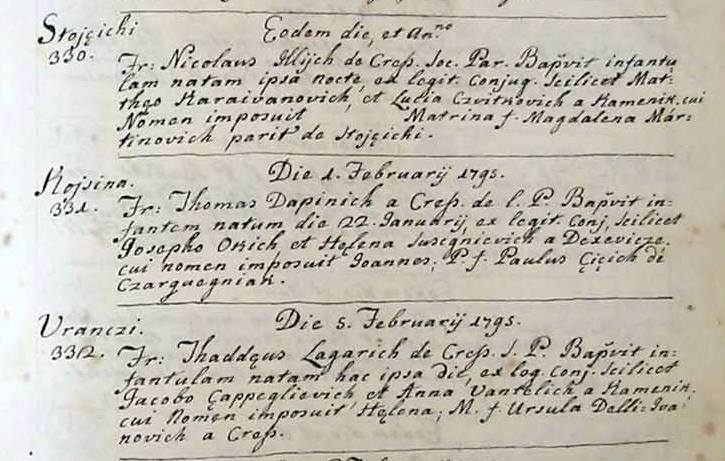 Stojçichi
330.
Eodem die, et An.no
Fr: Nicolaus Illijch de Creß. Soc. Par. Bap̃vit infantu
lam natam ipsa nocte, ex legit. Conjug. Scilicet Mat=
thęo Karaivanovich, et Lucia Czvitkovich a Kamenik. cui
Nomen imposuit Matrina f. Magdalena Mar=
tinovich parit de Stojçichi.
Kojsina.
331.
Die 1. Februarij 1795.
Fr: Thomas Dapinich a Creß. de l. P. Bap̃vit in=
fantem natum die 22. Januarij, ex legit. Conj. Scilicet
Josepho Okich et Hęlena Susegnievich a Dexevicze.
cui nomen imposuit Joannes; P. f. Paulus Çiçich di
Czarguegniak.
Vranczi.
3312.
Die 5. Februarij 1795.
Fr: Thaddęus Lagarich de Creß. S. P. Bap̃vit in=
fantulam natam hac ipsa die, ex leg. Conj. Scilicet
Jacobo Çappeglievich et Anna Vantelich a Kamenik,
cui Nomen imposuit Hęlena; M. f. Ursula Dalli=Iva
novich a Creß.